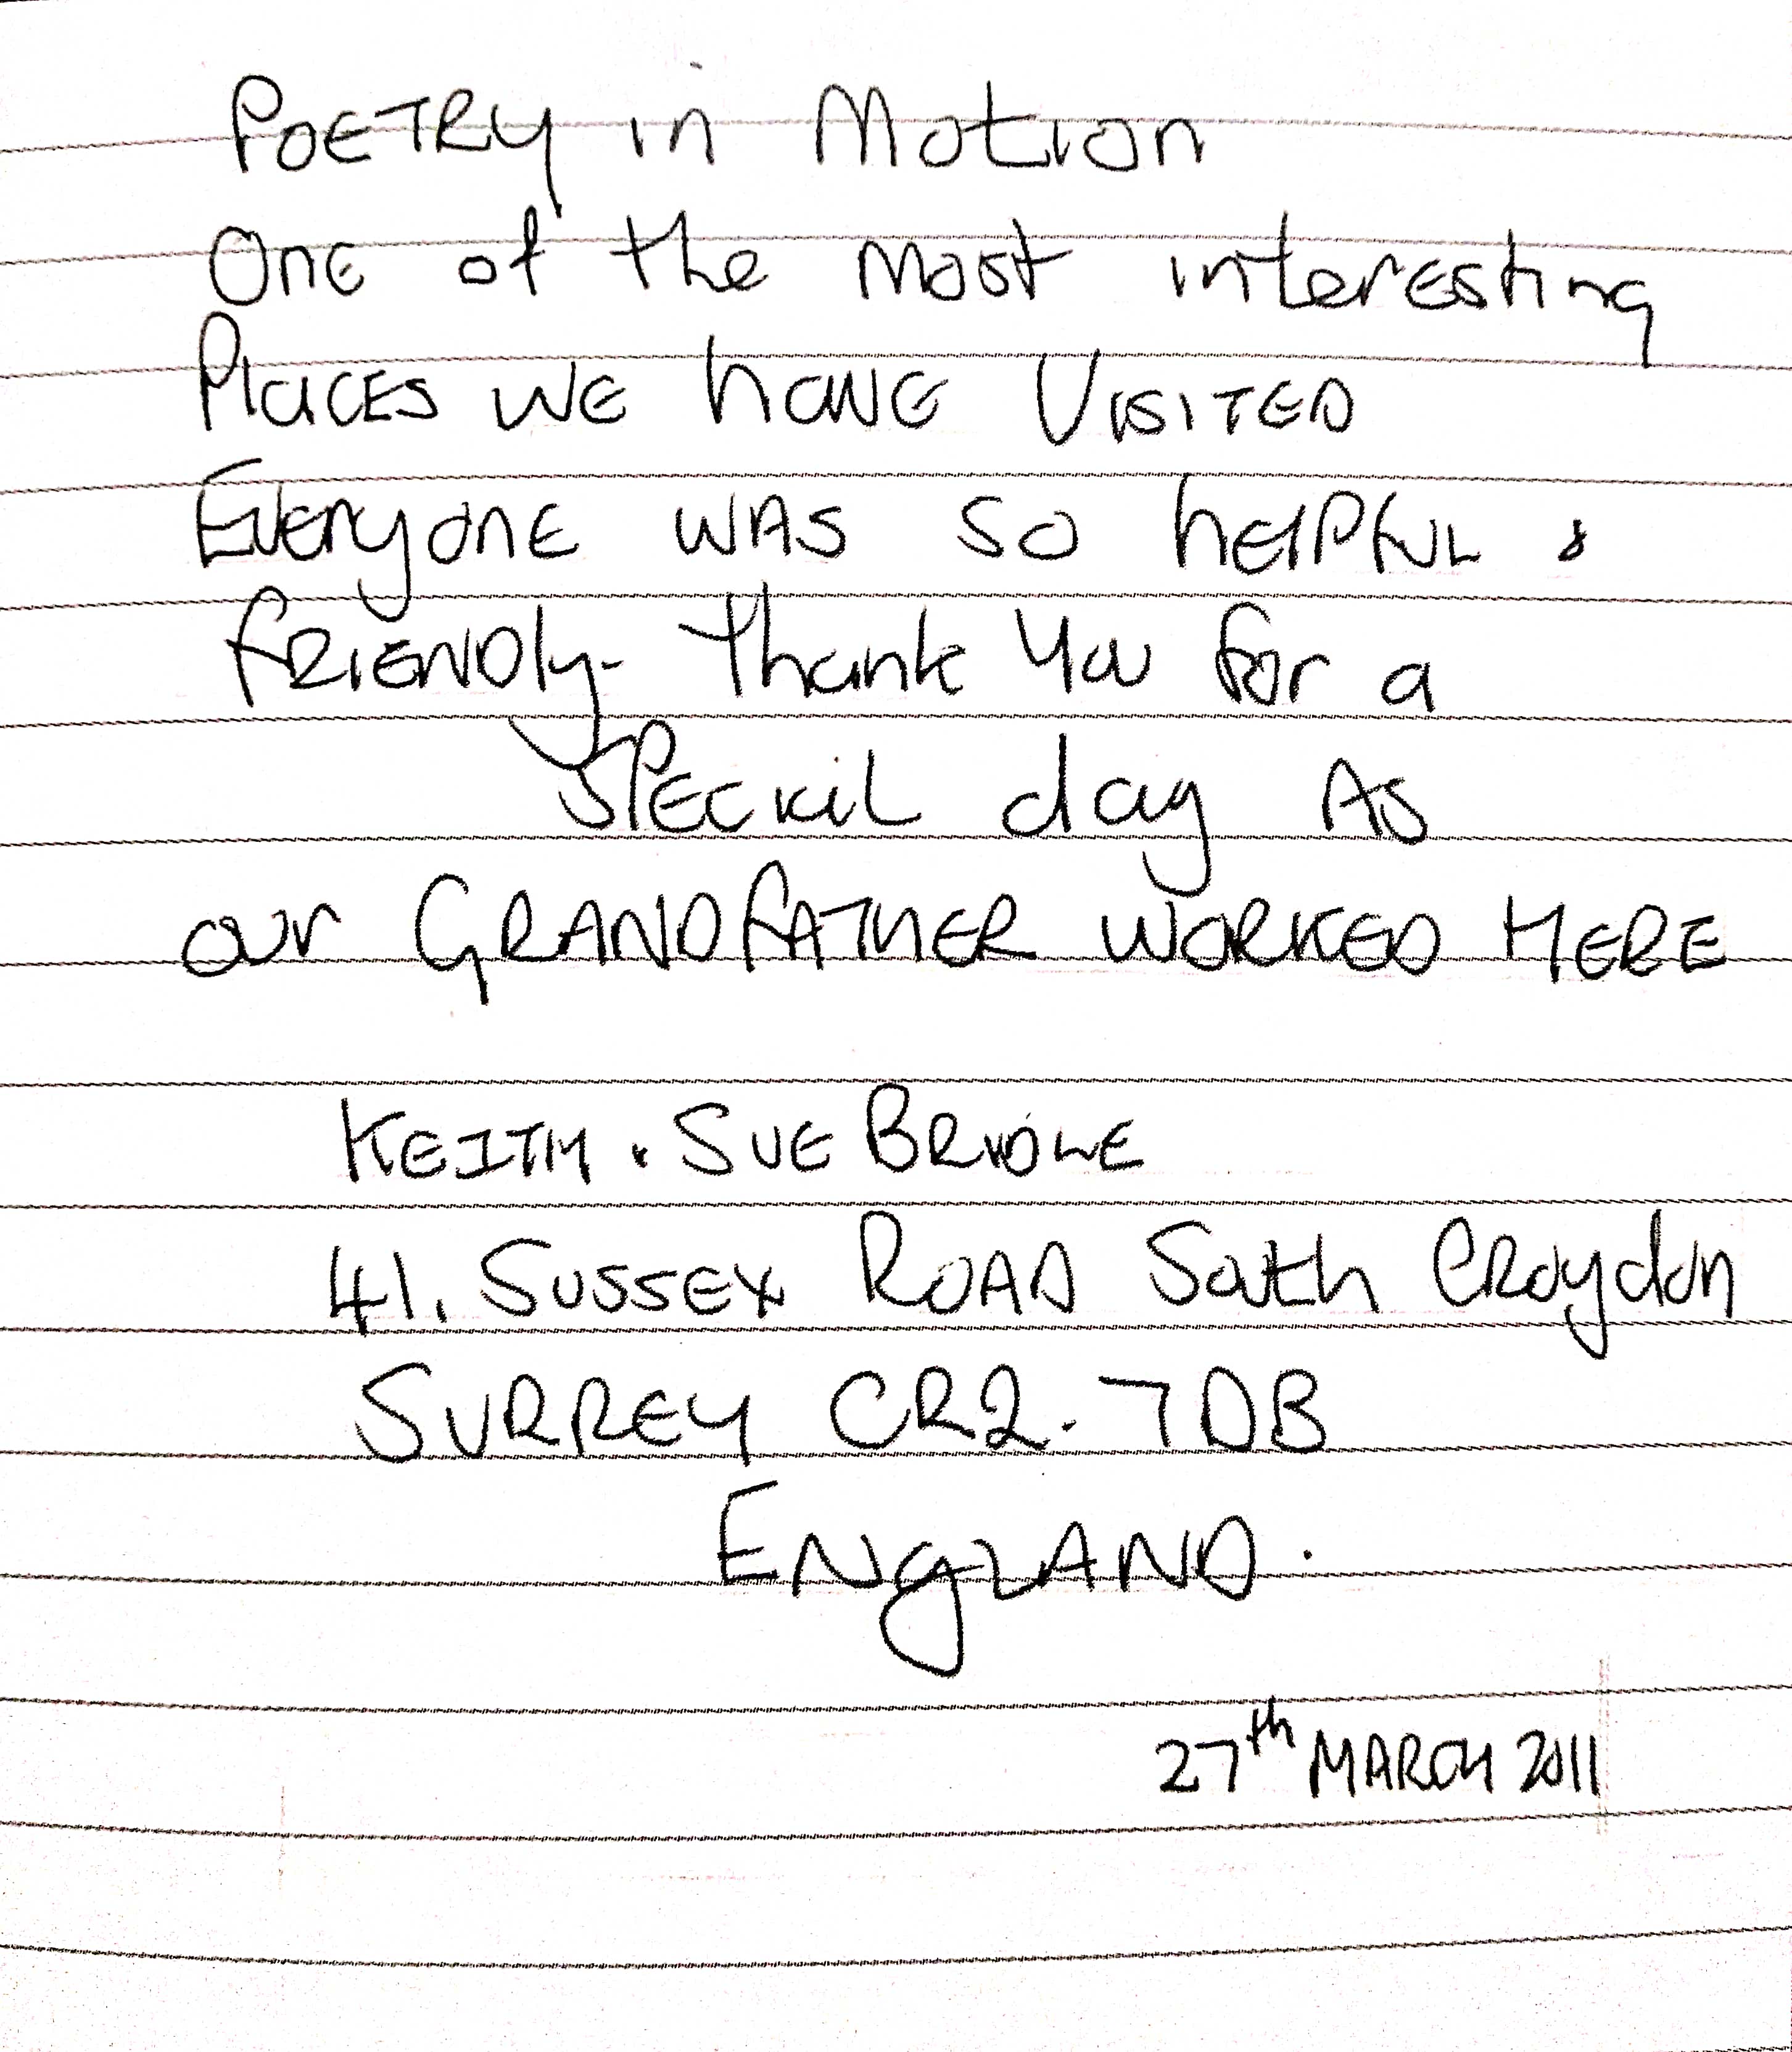 POETRY in Motion
One of the Most interesting
Places WE have VISITED
Everyone WAS SO helpful &
friendly - thank you for a
SPECIAL day AS
our GRANDFATHER WORKED HERE
KEITH & SUE BRIDLE
41. SUSSEX ROAD South Croydon
SURREY CR2. 7DB
ENgLAND.
27th MARCH 2011